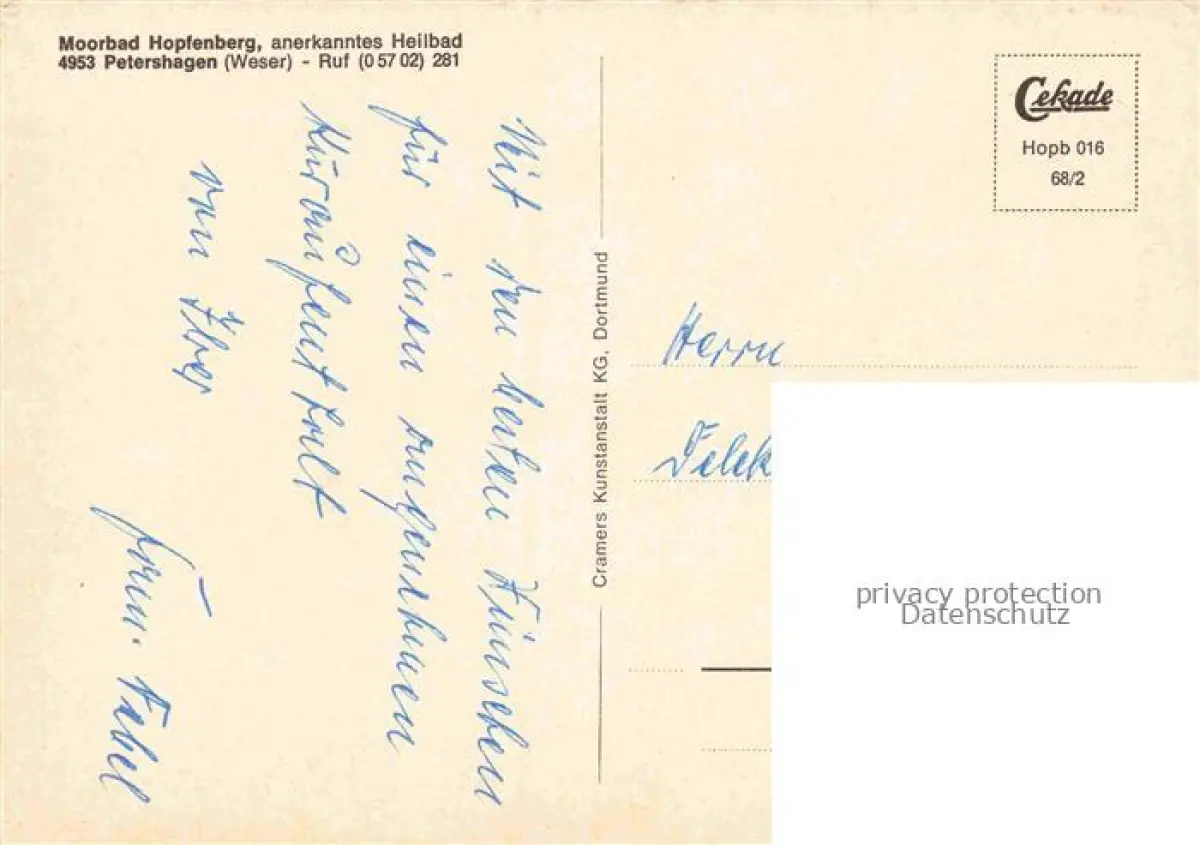 Moorbad Hopfenberg, anerkanntes Heilbad
4953 Petershagen (Weser) - Ruf (0 57 02) 281
Mit den besten Wünschen
für einen angenehmen
Kuraufenthalt
von Ihrer
Fam. Fabel
Cramers Kunstanstalt KG, Dortmund
Cekade
Hopb 016
68/2
Herrn
privacy protection
Datenschutz